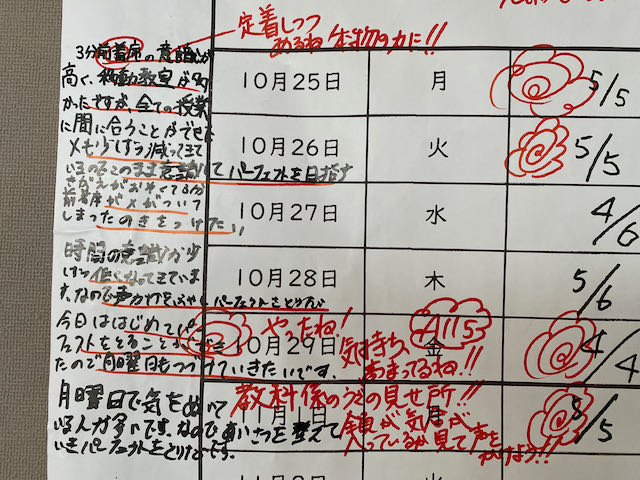 定着しつつ
あるね 本物の力に!!
3分前着席の意識が
高く、移動教室が多
かたですが、全ての授業
に間に合うことができた
メもう少しずつ減ってきて
いるのでこのまま意識してパーフェクトを目指す
前着席が×がついて
しまったのできをつけたい
時間の意識が少
し低くなってきていま
す、なので声かけを
今日ははじめてパー
フェクトをとることができ
たので月曜日もつづけていきたいです。
月曜日で気をぬいて
いる人が多いです。なので
いきパーフェクトをとりたいです。
10月25日 月 5/5
10月26日 火 5/5
10月27日 水 4/6
10月28日 木 5/6
やったね!
気持ち
高まってるね!!
All 5
10月29日 金 4/4
教科係のうでの見せ所!!
11月1日 月 8/5
声を
かけよう!!